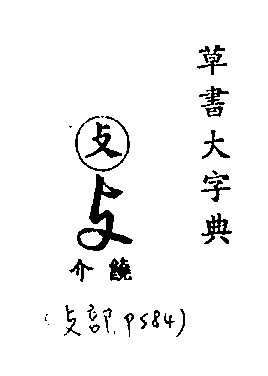 草書大字典
攴
攴
鐃介
(攴部.P584)